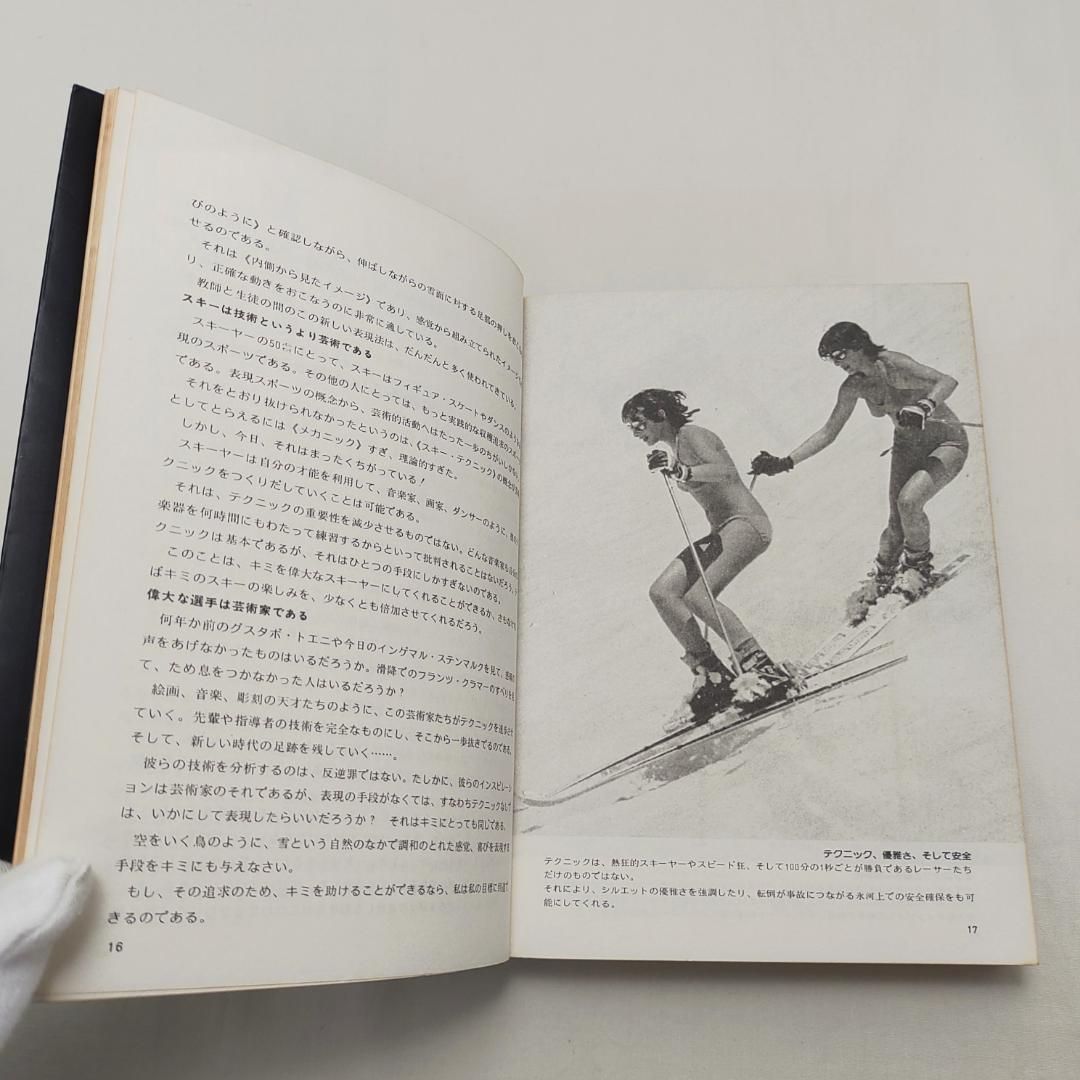 びのように》と確認しながら、伸ばしながらの雪面に対する足部の押しを
せるのである。
それは《内側から見たイメージ》であり、感覚から組み立てられたイメージ
り、正確な動きをおこなうのに非常に適している。
教師と生徒の間のこの新しい表現法は、だんだんと多く使われてきている。
スキーは技術というより芸術である
スキーヤーの50%にとって、スキーはフィギュア・スケートやダンスのような
現のスポーツである。その他の人にとっては、もっと実践的な収穫追求のスポー
である。表現スポーツの概念から、芸術的活動へはたった一歩のちがいしか
それをとおり抜けられなかったというのは、《スキー・テクニック》の概念が
としてとらえるには《メカニック》すぎ、理論的すぎた。
しかし、今日、それはまったくちがっている!
スキーヤーは自分の才能を利用して、音楽家、画家、ダンサーのように、
クニックをつくりだしていくことは可能である。
それは、テクニックの重要性を減少させるものではない。どんな音楽家も
楽器を何時間にもわたって練習するからといって批判されることはないだろう。
クニックは基本であるが、それはひとつの手段にしかすぎないのである。
このことは、キミを偉大なスキーヤーにしてくれることができるか、さもなけれ
ばキミのスキーの楽しみを、少なくとも倍加させてくれるだろう。
偉大な選手は芸術家である
何年か前のグスタボ・トエニや今日のインゲマル・ステンマルクを見て、
声をあげなかったものはいるだろうか。滑降でのフランツ・クラマーのすべりを見
て、ため息をつかなかった人はいるだろうか?
絵画、音楽、彫刻の天才たちのように、この芸術家たちがテクニックを進歩させ
ていく。先輩や指導者の技術を完全なものにし、そこから一歩抜きでるのである。
そして、新しい時代の足跡を残していく……。
彼らの技術を分析するのは、反逆罪ではない。たしかに、彼らのインスピレーシ
ョンは芸術家のそれであるが、表現の手段がなくては、すなわちテクニックなしで
は、いかにして表現したらいいだろうか? それはキミにとっても同じである。
空をいく鳥のように、雪という自然のなかで調和のとれた感覚、喜びを表現する
手段をキミにも与えなさい。
もし、その追求のため、キミを助けることができるなら、私は私の目標に到達で
きるのである。
16
テクニック、優雅さ、そして安全
テクニックは、熱狂的スキーヤーやスピード狂、そして100分の1秒ごとが勝負であるレーサーたち
だけのものではない。
それにより、シルエットの優雅さを強調したり、転倒が事故につながる氷河上での安全確保をも可
能にしてくれる。
17